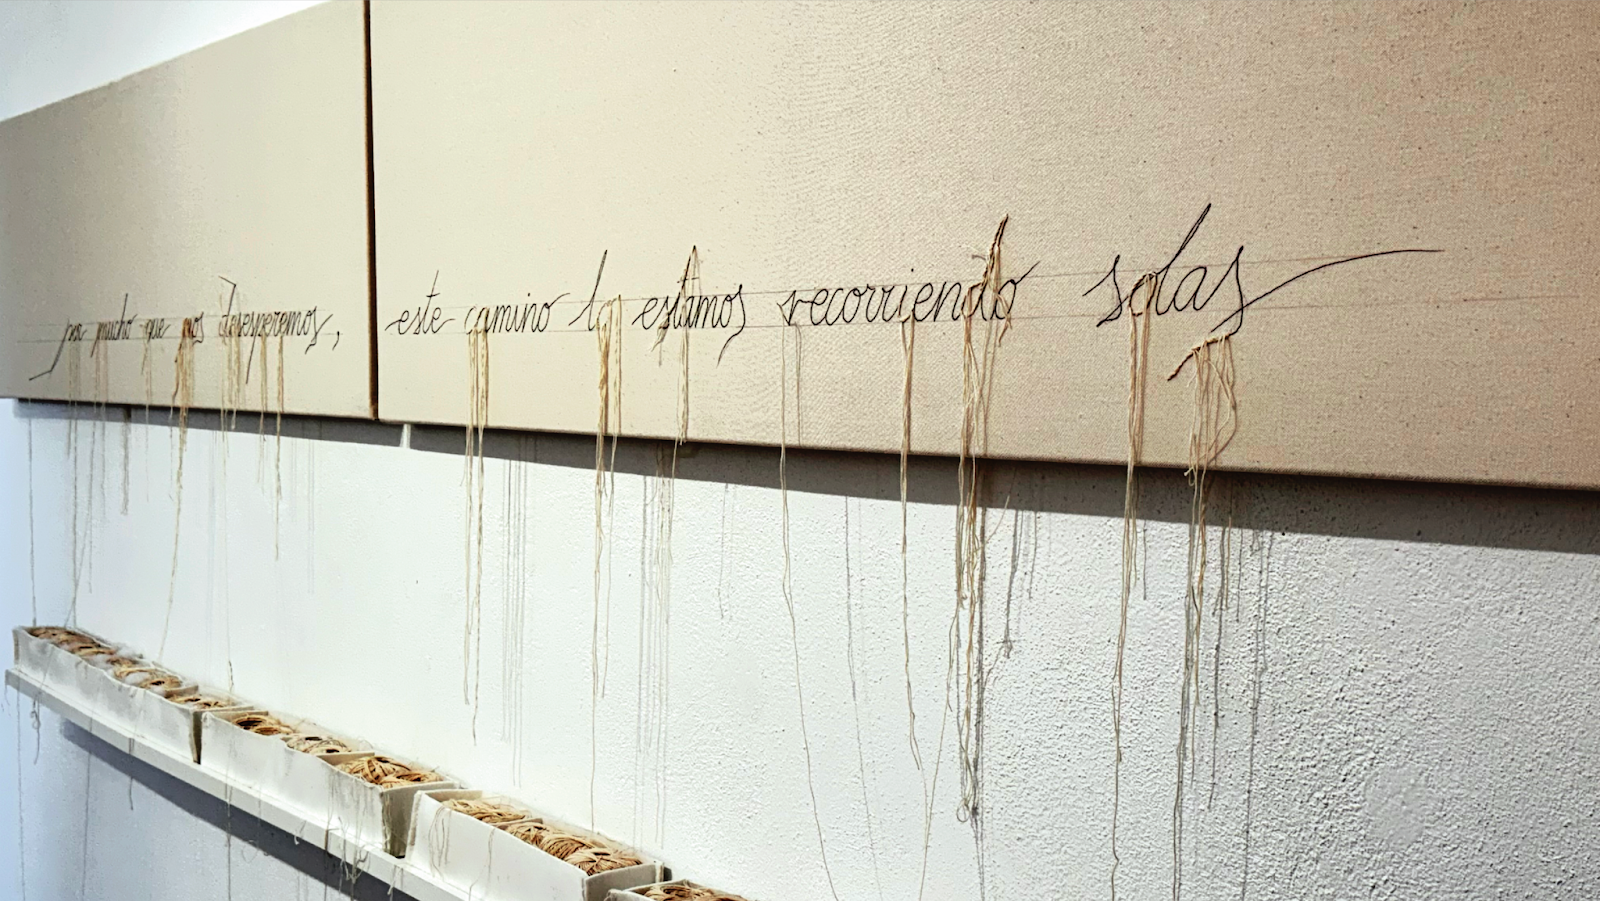 por mucho que nos desesperemos, este camino lo estamos recorriendo solas